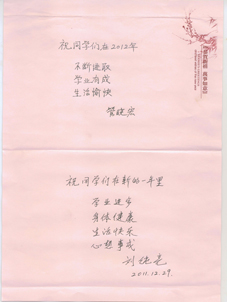 祝同学们在2012年
不断进取
学业有成
生活愉快
管晓宏
祝同学们在新的一年里
学业进步
身体健康
生活快乐
心想事成
2011.12.29.